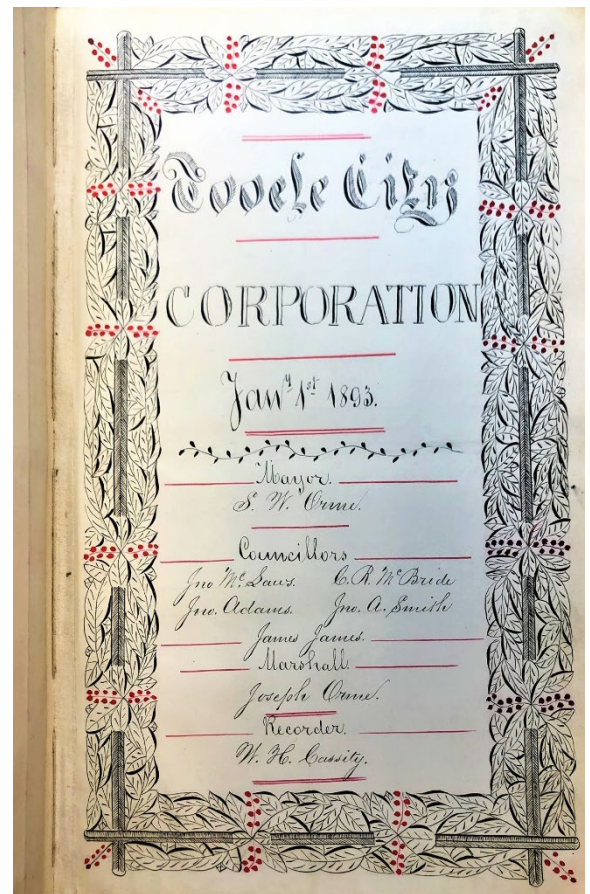 Tooele City
CORPORATION
Jany 1st 1893.
Mayor.
S. W. Orme.
Councillors
Jno Mc Laws. C. R. Mc Bride
Jno. Adams. Jno. A. Smith
James James.
Marshall.
Joseph Orme.
Recorder.
W. H. Cassity.